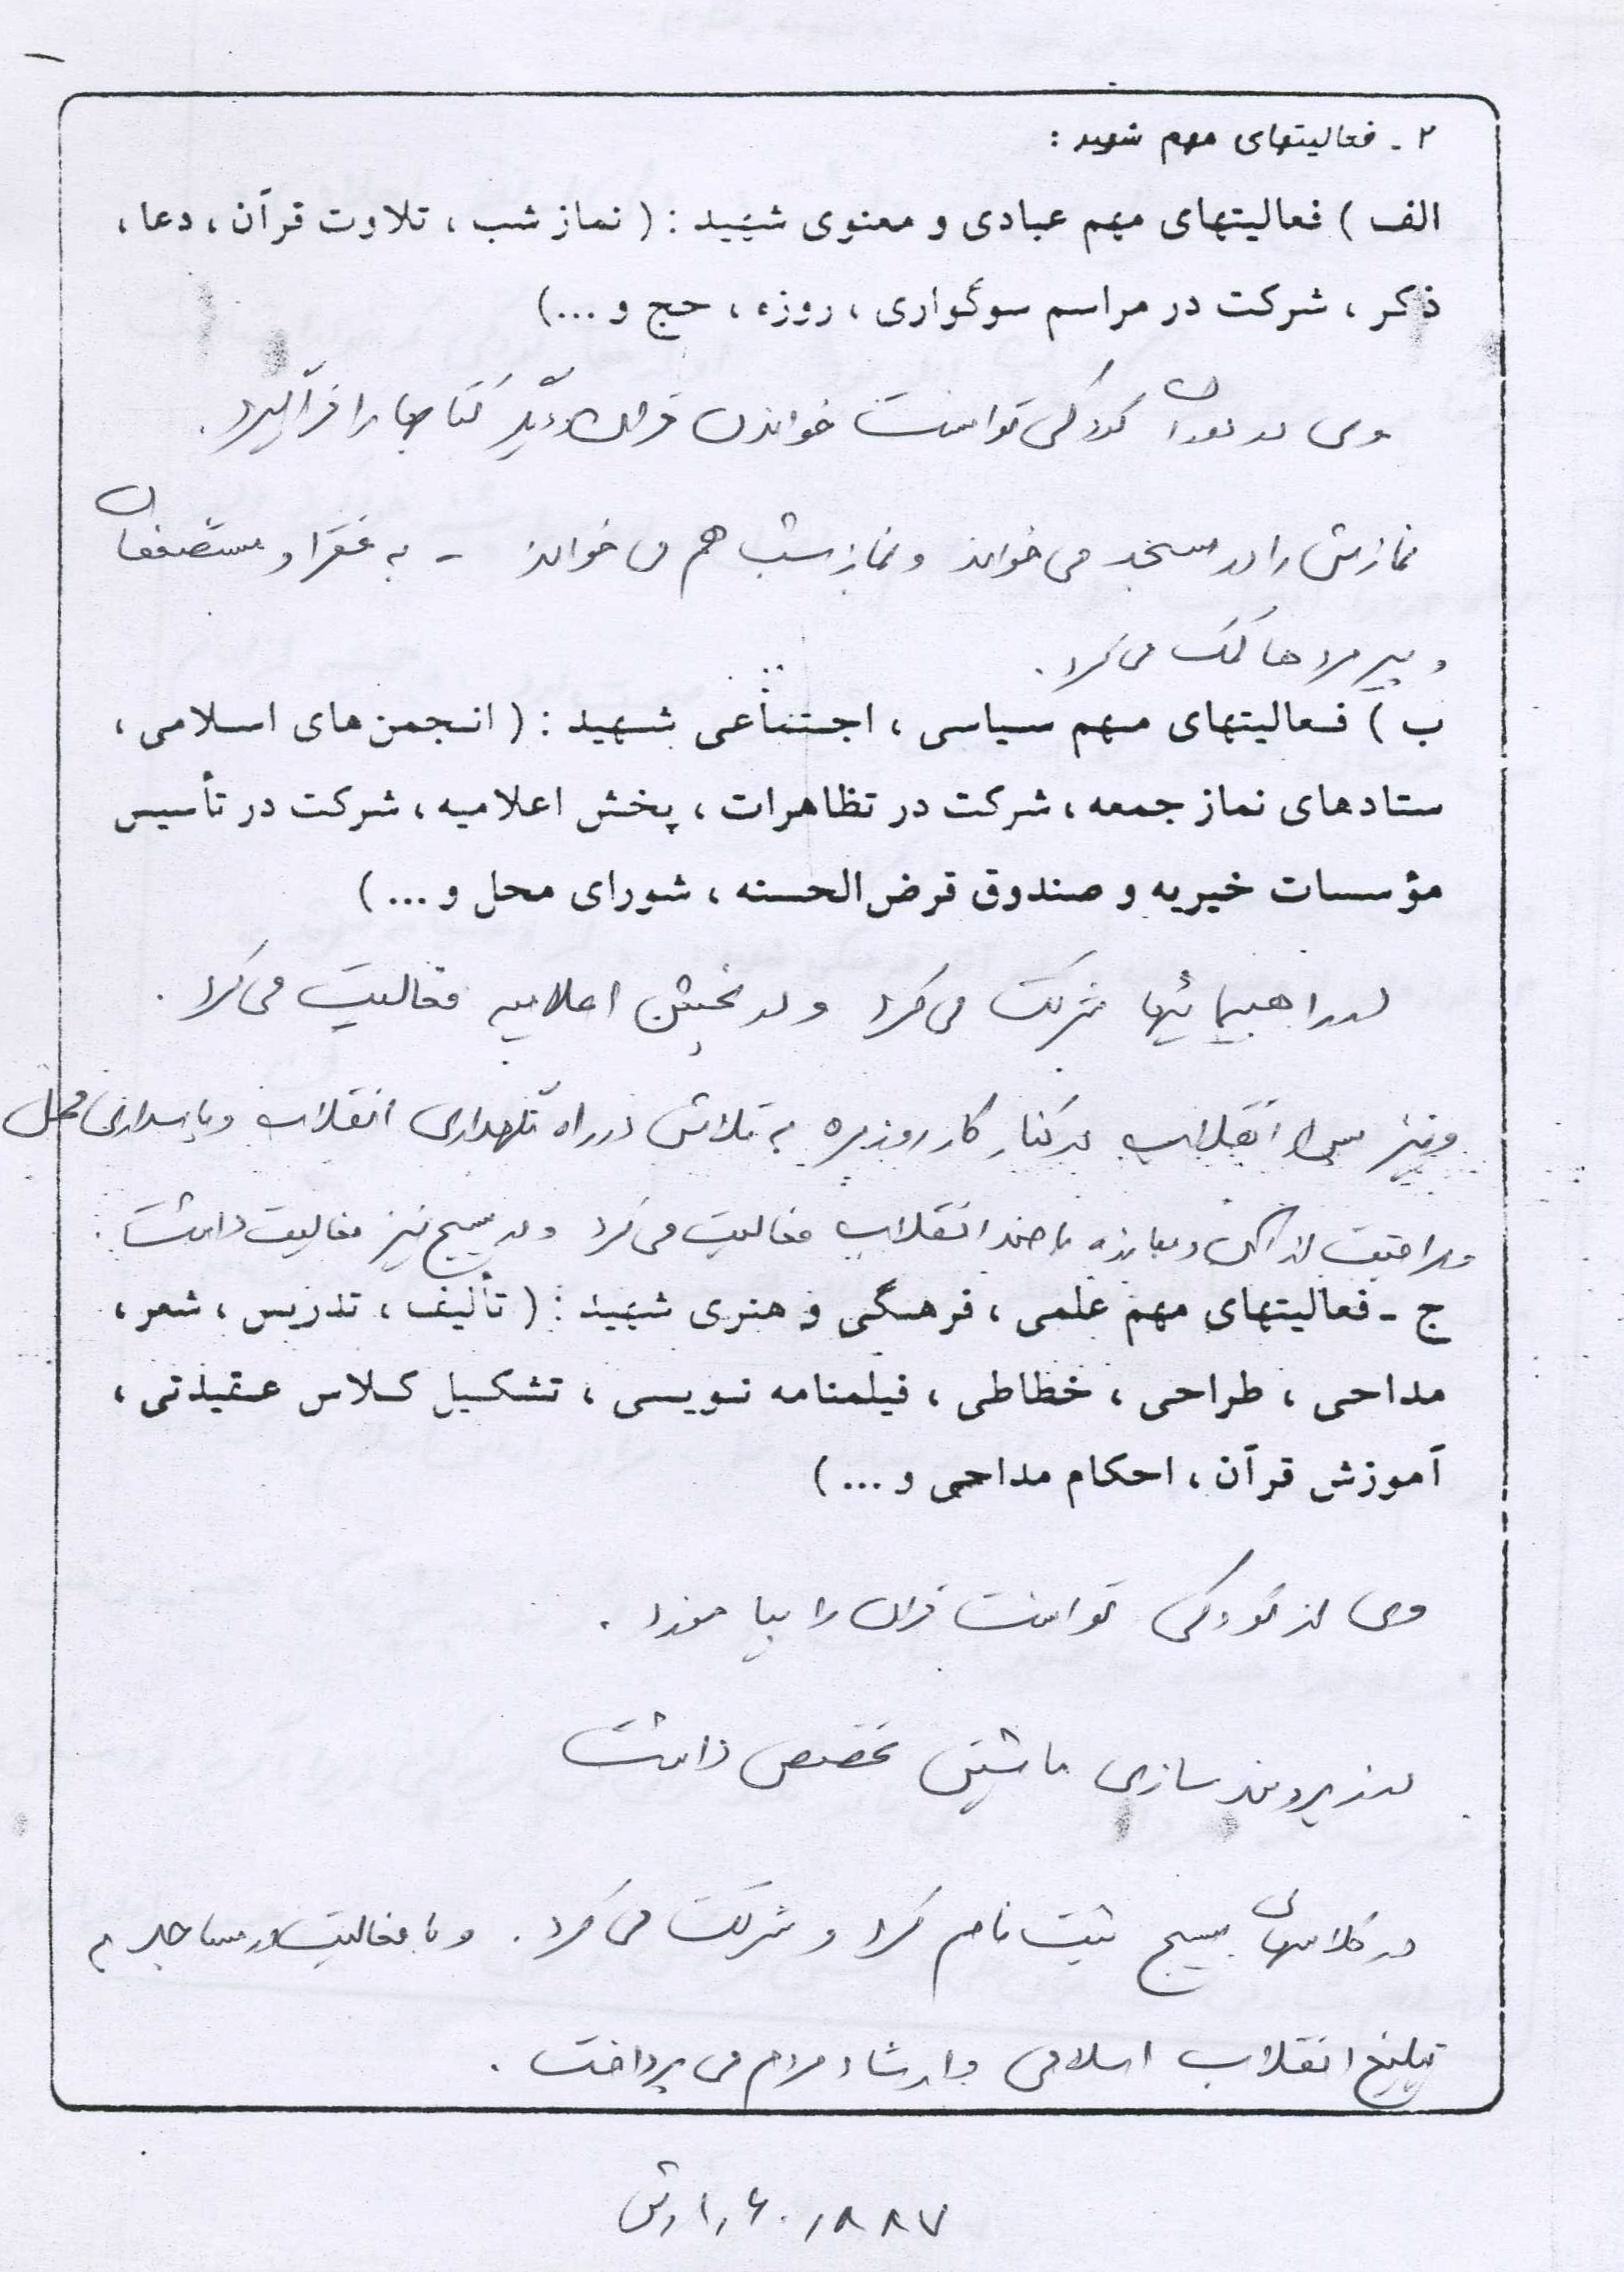 ۲ - فعالیتهای مهم شهید :
الف ) فعالیتهای مهم عبادی و معنوی شهید : ( نماز شب ، تلاوت قرآن ، دعا ،
ذکر ، شرکت در مراسم سوگواری ، روزه ، حج و ...)
وی در دوران کودکی توانست خواندن قرآن و دیگر کتابها را فرا گیرد .
نمازش را در مسجد می خواند و نماز شب هم می خواند - به فقرا و مستضعفان
و پیر مردها کمک می کرد .
ب ) فعالیتهای مهم سیاسی ، اجتماعی شهید : ( انجمن های اسلامی ،
ستادهای نماز جمعه ، شرکت در تظاهرات ، پخش اعلامیه ، شرکت در تأسیس
مؤسسات خیریه و صندوق قرض الحسنه ، شورای محل و ... )
در راهپیمائیها شرکت می کرد و در پخش اعلامیه فعالیت می کرد .
و نیز پس از انقلاب در کنار کار روزمره به تلاش در راه نگهداری انقلاب و پاسداری محل
و مراقبت از آن و مبارزه با ضد انقلاب فعالیت می کرد و در بسیج نیز فعالیت داشت .
ج - فعالیتهای مهم علمی ، فرهنگی و هنری شهید : ( تألیف ، تدریس ، شعر ،
مداحی ، طراحی ، خطاطی ، فیلمنامه نویسی ، تشکیل کلاس عقیدتی ،
آموزش قرآن ، احکام مداحی و ... )
وی از کودکی توانست قرآن را بیاموزد .
در زیروبند سازی ماشین تخصص داشت
در کلاسهای بسیج ثبت نام کرد و شرکت می کرد . و با فعالیت در مساجد به
تبلیغ انقلاب اسلامی و ارشاد مردم می پرداخت .